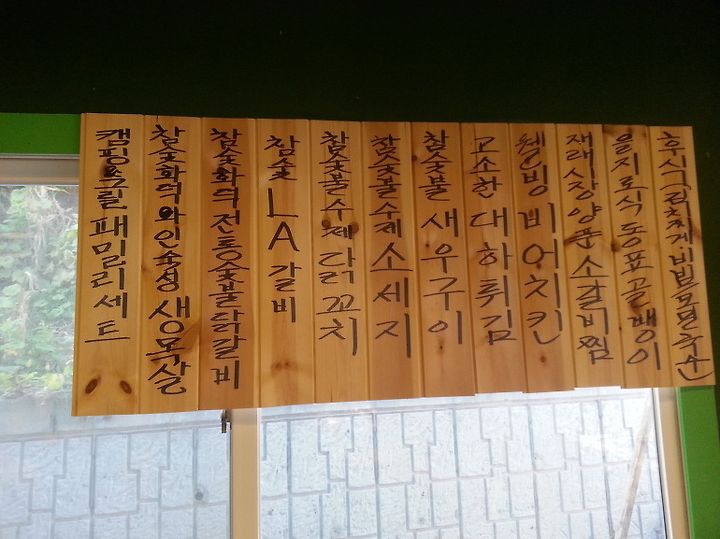 캠핑&그릴 패밀리세트
참숯화덕 와인숙성 생목살
참숯화덕 전통숯불닭갈비
참숯 LA갈비
참숯불수제 닭꼬치
참숯불수제 소세지
참숯불 새우구이
고소한 대하튀김
웰빙 비어치킨
재래시장 양푼소갈비찜
을지로식 동표골뱅이
후식